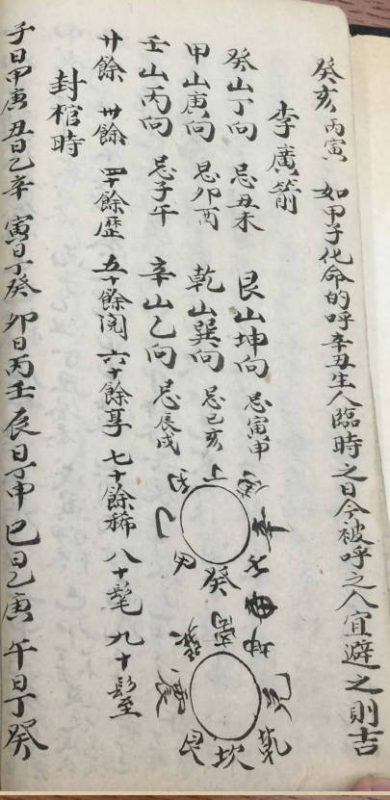 癸亥 丙寅 如甲子化命的呼辛丑生人臨時之日今被呼之人宜避之則吉
李廣箭
癸山丁向 忌丑未 艮山坤向 忌寅申
甲山庚向 忌卯酉 乾山巽向 忌巳亥
壬山丙向 忌子午 辛山乙向 忌辰戌
癸
坤
乾
坎
艮
廿餘 卅餘 四十餘歷 五十餘浣 六十餘享 七十餘稀 八十髦 九十
封棺時
子日甲庚 丑日乙辛 寅日丁癸 卯日丙壬 辰日丁甲 巳日乙庚 午日丁癸